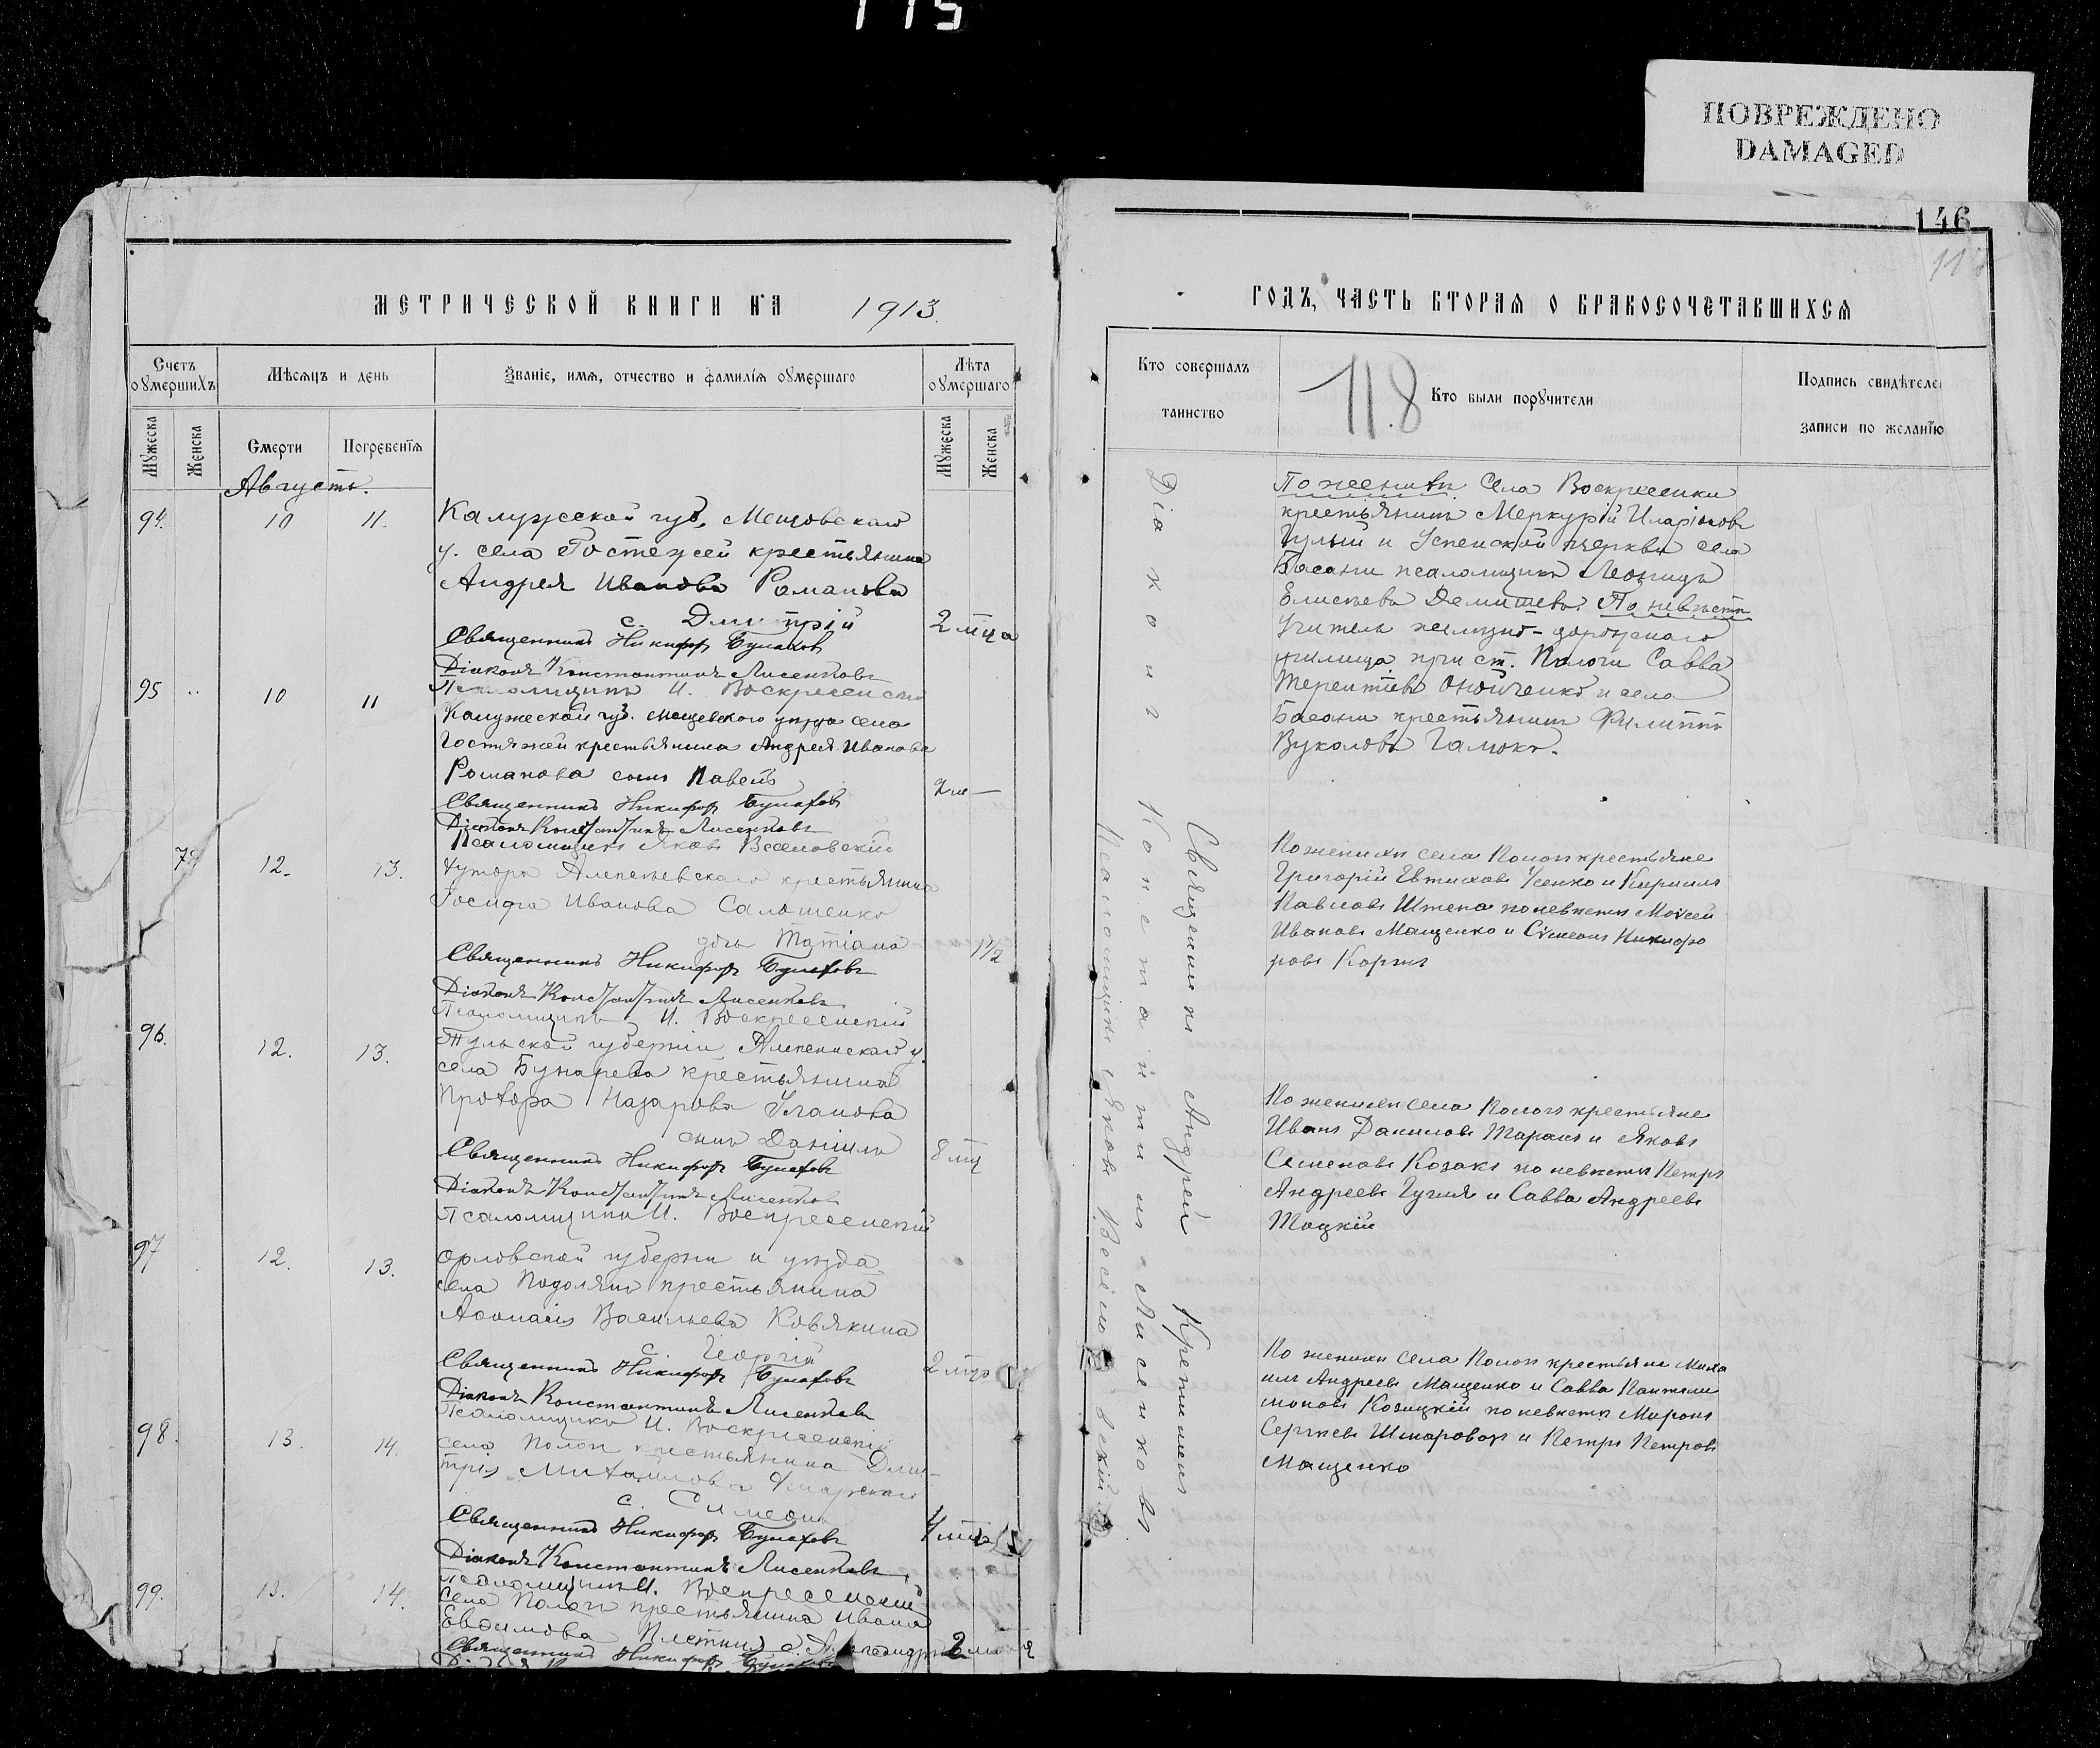 115
ПОВРЕЖДЕНО
DAMAGED
МЕТРИЧЕСКОЙ КНИГИ НА 1913.
Счетъ оумершихъ
Мѣсяцъ и день
Званіе, имя, отчество и фамилія оумершаго
Лѣта оумершаго
Мужеска
Женска
Смерти
Погребенія
Мужеска
Женска
Августъ.
94. 10 11. Калужской губ. Мещовскаго
у. села Гостежей крестьянина
Андрея Иванова Романова
с. Дмитрій 2 мца
Священникъ Никифоръ
Діаконъ Константинъ Лисенковъ
Псаломщикъ И. Воскресенскій
95 " 10 11
Калужской губ. Мещовскаго уѣзда села
Гостежей крестьянина Андрея Иванова
Романова сынъ Павелъ 2 м
Священникъ Никифоръ
Діаконъ Константинъ Лисенковъ
Псаломщикъ Яковъ Веселовскій
12. 13. хутора крестьянина
Іосифа Иванова Салошенко
дочь Татіана 1 1/2
Священникъ Никифоръ
Діаконъ Константинъ Лисенковъ
Псаломщикъ И. Воскресенскій
96. 12. 13. Тульской губерніи у.
села крестьянина
Прохора Назарова Уланова
сынъ Даніилъ 8 мц
Священникъ Никифоръ
Діаконъ Константинъ Лисенковъ
Псаломщикъ И. Воскресенскій
97 12. 13. Орловской губерни и уѣзда
села Подолянъ крестьянина
Аѳонасія Васильева Ковякина
с. Георгій 2 мца
Священникъ Никифоръ
Діаконъ Константинъ Лисенковъ
Псаломщикъ И. Воскресенскій
98. 13. 14. села Пологъ крестьянина Дми-
трія Михайлова
с. Симеонъ 4 мца
Священникъ Никифоръ
Діаконъ Константинъ Лисенковъ
Псаломщикъ И. Воскресенскій
99. 13. 14. села Пологъ крестьянина Ивана
Евфимова с. 2
Священникъ Никифоръ
146
ГОДЪ, ЧАСТЬ ВТОРАЯ О БРАКОСОЧЕТАВШИХСЯ
Кто совершалъ таинство
118
Кто были поручители
Подпись свидѣтеле
записи по желанію
Священникъ Андрей
Діаконъ Константинъ Лисенковъ
Псаломщикъ Яковъ Веселовскій
По женихѣ села Воскресенки
крестьянинъ Меркурій Иларіоновъ
и Успенской церкви села
Басани псаломщикъ Леонидъ
Елисѣевъ По невѣстѣ
учитель желѣзно-дорожнаго
училища при ст. Пологи Савва
Терентіевъ и села
Басани крестьянинъ Филиппъ
Вуколовъ Галюка.
По женихѣ села Пологъ крестьяне
Григорій Евтиховъ Усенко и Кириллъ
Павловъ Штепа по невѣстѣ Моѵсей
Ивановъ Мащенко и Сѵмеонъ Никифо
ровъ Коржъ
По женихѣ села Пологъ крестьяне
Иванъ Даниловъ Таранъ и Яковъ
Семеновъ Козакъ по невѣстѣ Петръ
Андреевъ и Савва Андреевъ
Тоцкій
По женихѣ села Пологъ крестьяне Миха
илъ Андреевъ Мащенко и Савва Пантели
моновъ Козицкій по невѣстѣ Миронъ
Сергѣевъ и Петръ Петровъ
Мащенко